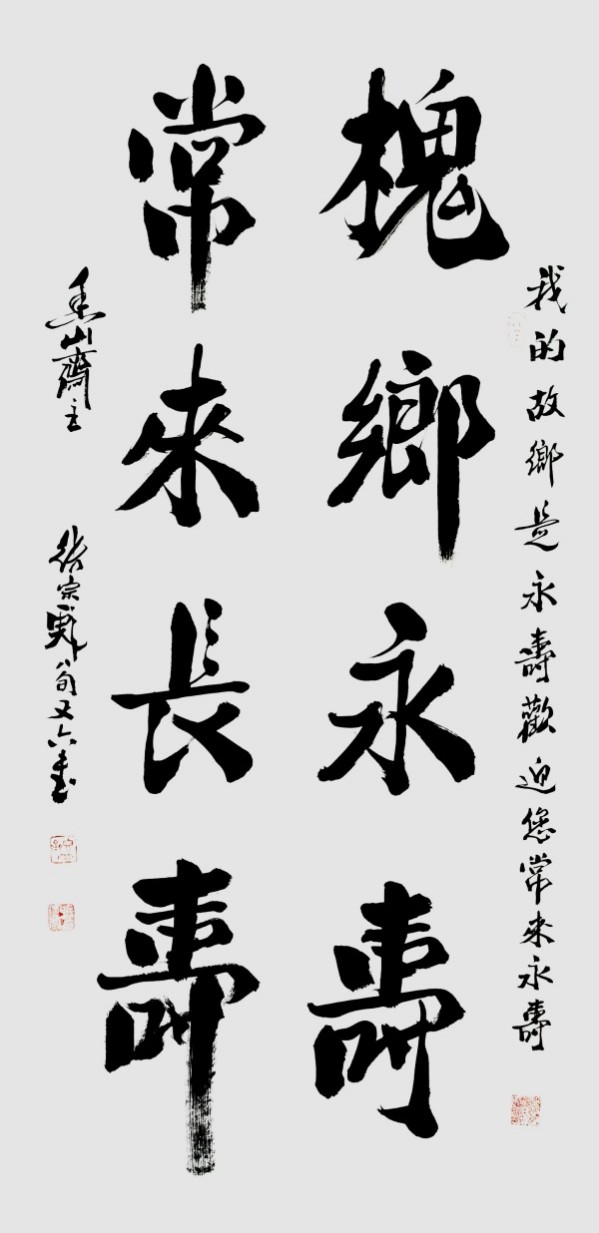 我的故鄉是永壽歡迎您常來永壽
槐鄉永壽
常來長壽
山齋主
張宗 八旬又六書